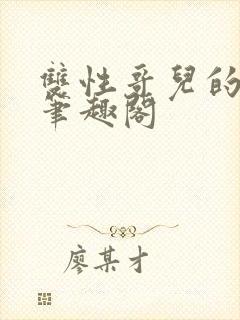 雙性哥兒的
筆趣閣
廖某才